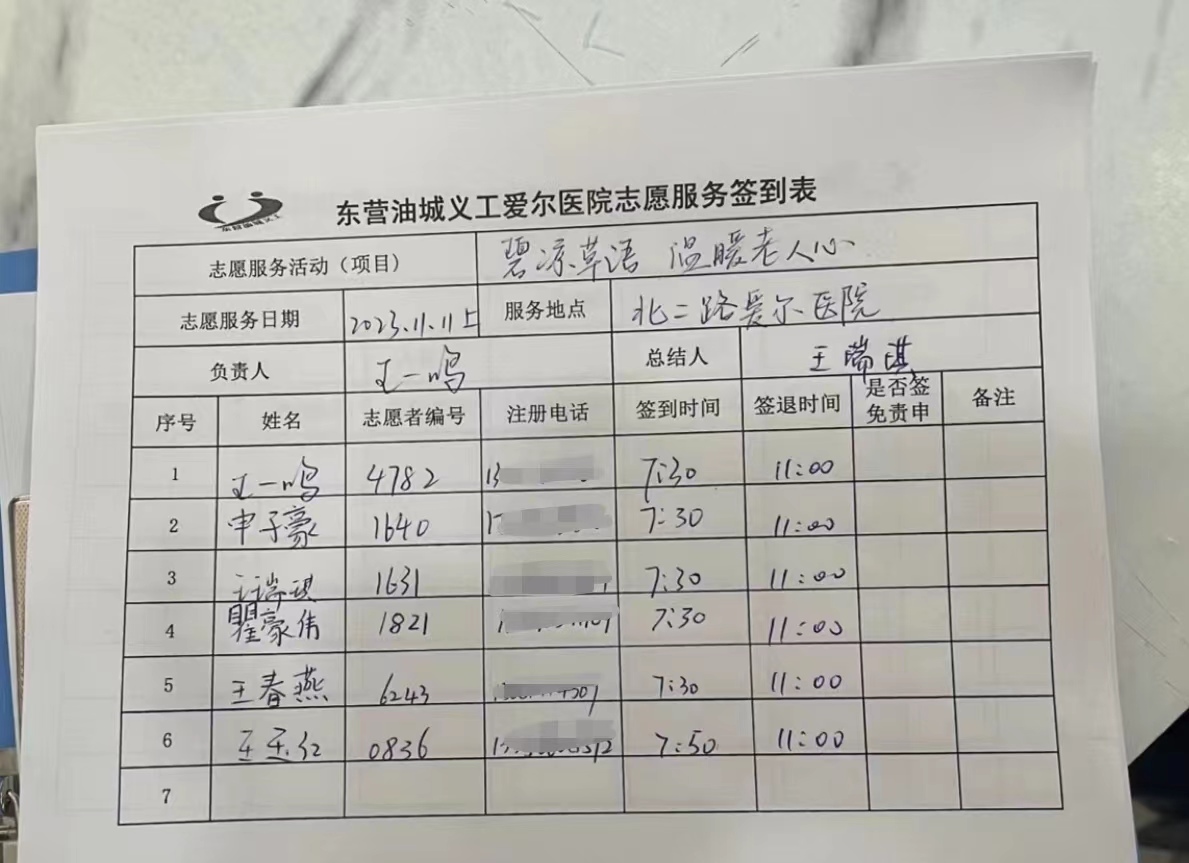 东营油城义工
东营油城义工爱尔医院志愿服务签到表
志愿服务活动（项目） 碧凉草语 温暖老人心
志愿服务日期 2023.11.11上 服务地点 北二路爱尔医院
负责人 王一鸣 总结人 王瑞琪
序号 姓名 志愿者编号 注册电话 签到时间 签退时间 是否签免责申 备注
1 王一鸣 4782 13 7:30 11:00
2 申子豪 1640 7:30 11:00
3 王瑞琪 1631 7:30 11:00
4 瞿豪伟 1821 7:30 11:00
5 王春燕 6243 7:30 11:00
6 王玉红 0836 7:50 11:00
7